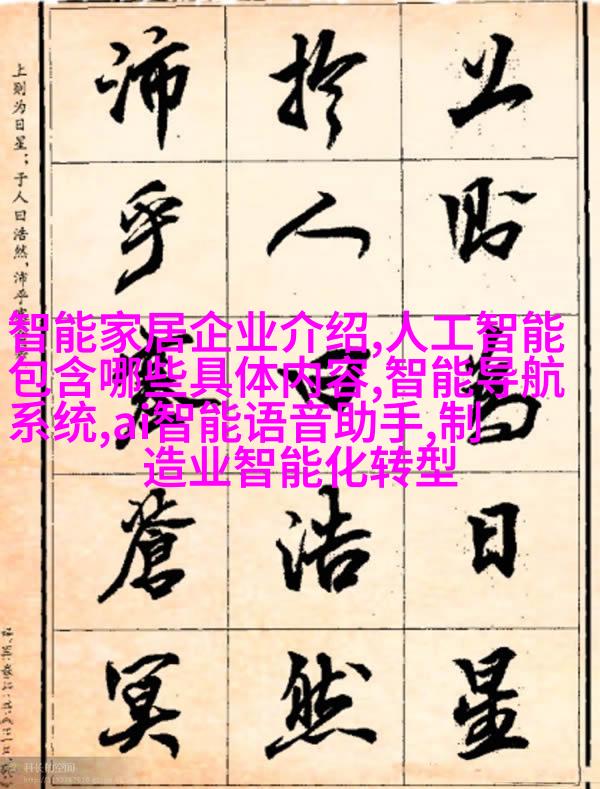 上則為日星
扵人曰浩然
沛乎塞蒼冥
上则为日星；于人曰浩然，沛乎
智能家居企业介绍,人工智能
包含哪些具体内容,智能导航
系统,ai智能语音助手,制
造业智能化转型
科长的空间